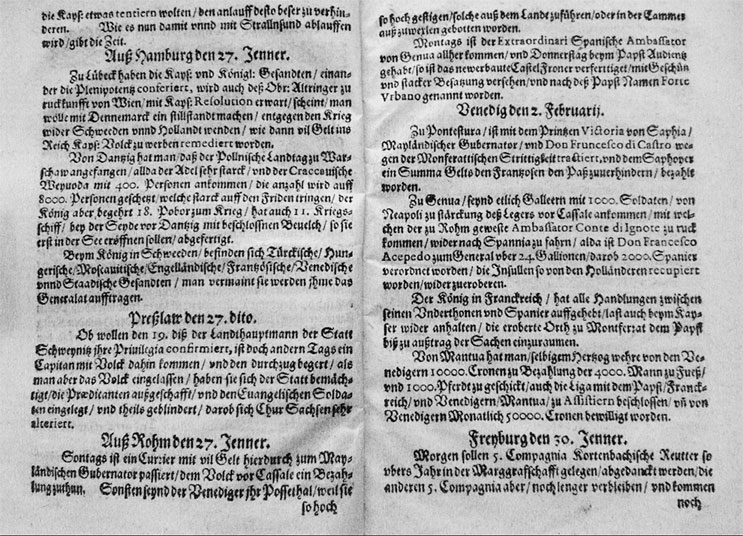 die Kays: etwas tentiern wolten / den anlauff desto beser zu verhin-
deren. Wie es nun damit vnnd mit Stralsund ablauffen
wird / gibt die Zeit.
Auß Hamburg den 27. Jenner.
Zu Lübeck haben die Kays: vnd Königl: Gesandten / einan-
der die Plenipotentz conferiert, wird auch deß Obr: Altringer zu
ruckkunfft von Wien / mit Kays: Resolution erwart / scheint / man
wolle mit Dennemarck ein stillstandt machen / entgegen den Krieg
wider Schweden vnnd Hollandt wenden / wie dann vil Gelt ins
Reich Kays: Volck zu werben remediert worden.
Von Dantzig hat man / daß der Pollnische Landtag zu War-
schaw angefangen / allda der Adel sehr starck / vnd der Craccauische
Weywoda mit 400. Personen ankommen / die anzahl wird auff
8000. Personen geschetzt, welche starck auff den Friden tringen / der
König aber begehrt 18. Pobor zum Krieg / hat auch 11. Kriegs-
schiff / bey der Seyde vor Dantzig mit beschlossnen Beuelch / so sie
erst in der See eröffnen sollen / abgefertigt.
Beym König in Schweden / befinden sich Türckische / Hun-
gerische / Moscauitische / Engelländische / Frantzösische / Venedische
vnnd Staadische Gesandten / man vermaint sie werden jhme das
Generalat aufftragen.
Preßlaw den 27. dito.
Ob wollen den 19. diß der Landthauptmann der Statt
Schweynitz jhre Priuilegia confirmiert, ist doch andern Tags ein
Capitan mit Volck dahin kommen / vnd den durchzug begert / als
man aber das Volck eingelassen / haben sie sich der Statt bemäch-
tigt / die Prædicanten außgeschafft / vnd den Euangelischen Solda-
ten eingelegt / vnd theils geblindert / darob sich Chur Sachsen sehr
alteriert.
Auß Rohm den 27. Jenner.
Sontags ist ein Currier mit vil Gelt hierdurch zum May-
ländischen Gubernator passiert / dem Volck vor Cassale ein Bezah-
lung zuthun. Sonsten seynd der Venediger jhr Posse hal / weil sie
so hoch
so hoch gestigen / solche auß dem Lande zuführen / oder in der Cammer
außzuwexlen gebotten worden.
Montags ist der Extraordinari Spanische Ambassator
von Genua allher kommen / vnd Donnerstag beym Papst Audientz
gehabt / so ist das newerbaute Castel Froner verfertiget / mit Geschütz
vnd starcker Besatzung versehen / vnd nach deß Papst Namen Forte
Vrbano genannt worden.
Venedig den 2. Februarij.
Zu Pontestura / ist mit dem Printzen Victoria von Saphia /
Mayländischer Gubernator / vnd Don Francesco di Castro we-
gen der Monferattischen Strittigkeit tractiert, vnd dem Saphoyer
ein Summa Gelts den Frantzosen den Paß zuverhindern / bezahlt
worden.
Zu Genua / seynd etlich Galleern mit 1000. Soldaten / von
Neapoli zu stärckung deß Legers vor Cassale ankommen / mit wel-
chen der zu Rohm geweste Ambassator Conte di Ignote zu ruck
kommen / wider nach Spannia zu fahrn / alda ist Don Francesco
Acepedo zum General vber 24. Gallionen / darob 2000. Spanier
verordnet worden / die Insullen so von den Holländeren recupiert
worden / wider zuerobern.
Der König in Franckreich / hat alle Handlungen zwischen
seinen Vnderthonen vnd Spanier auffgehebt / last auch beym Kay-
ser wider anhalten / die eroberte Orth zu Montferat dem Papst
biß zu außtrag der Sachen einzuraumen.
Von Mantua hat man / selbigem Hertzog wehre von den Ve-
nedigern 10000. Cronen zu Bezahlung der 4000. Mann zu Fueß /
vnd 1000. Pferdt zu geschickt / auch die Liga mit dem Papst / Franck-
reich / vnd Venedigern / Mantua / zu Assistiern beschlossen / vñ von
Venedigern Monatlich 50000. Cronen bewilligt worden.
Freyburg den 30. Jenner.
Morgen sollen 5. Compagnia Kortenbachische Reutter so
vbers Jahr in der Marggrafschafft gelegen / abgedanckt werden / die
anderen 5. Compagnia aber / noch lenger verbleiben / vnd kommen
noch